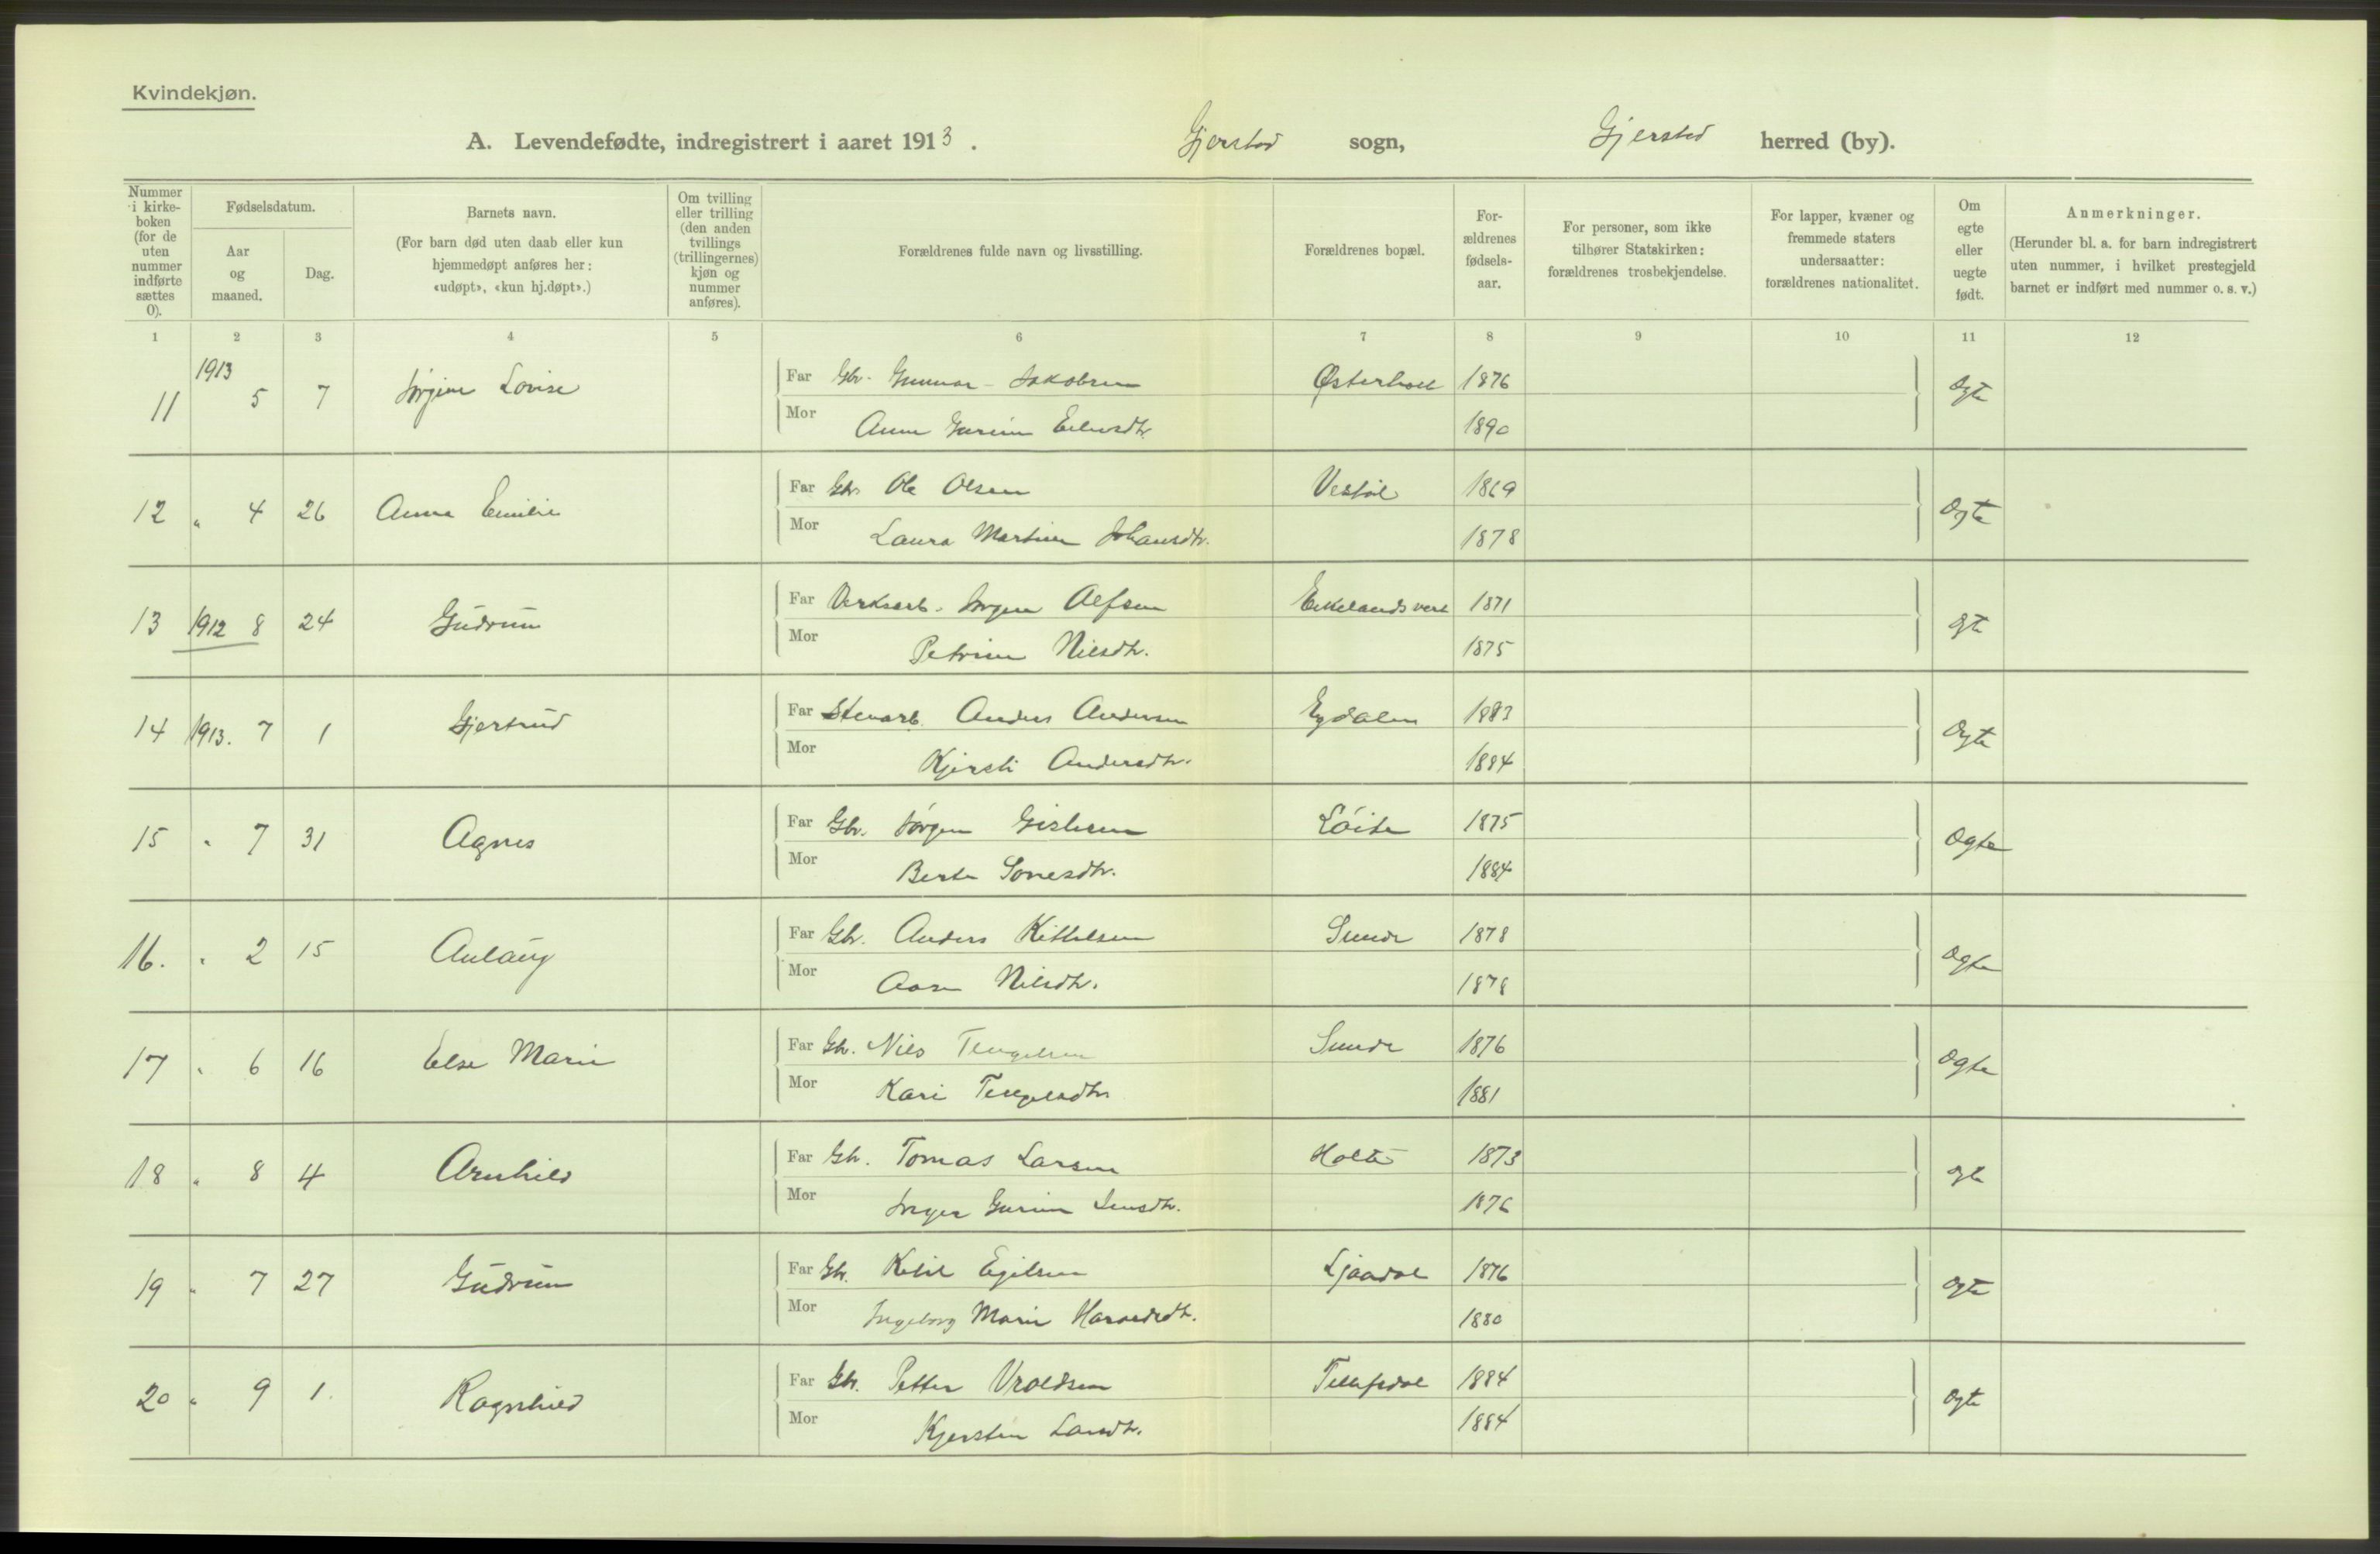 Kvindekjøn.
A. Levendefødte, indregistrert i aaret 1913. Gjerstad sogn, Gjerstad herred (by).
Nummer i kirke-boken (for de uten nummer indførte sættes 0).
Fødselsdatum.
Aar og maaned.
Dag.
Barnets navn.
(For barn død uten daab eller kun hjemmedøpt anføres her: «udøpt», «kun hj.døpt».)
Om tvilling eller trilling (den anden tvillings (trillingernes) kjøn og nummer anføres).
Forældrenes fulde navn og livsstilling.
Forældrenes bopæl.
For-ældrenes fødsels-aar.
For personer, som ikke tilhører Statskirken: forældrenes trosbekjendelse.
For lapper, kvæner og fremmede staters undersaatter: forældrenes nationalitet.
Om egte eller uegte født.
Anmerkninger.
(Herunder bl. a. for barn indregistrert uten nummer, i hvilket prestegjeld barnet er indført med nummer o. s. v.)
1 2 3 4 5 6 7 8 9 10 11 12
11 1913 5 7 Jørgine Lovise Far Gbr. Gunnar Jakobsen Østerholt 1876 Egte
Mor Anna Gurine 1890
12 " 4 26 Anna Emilie Far Gbr. Ole Olsen Vestøl 1869 Egte
Mor Laura Martine Johansdtr. 1878
13 1912 8 24 Gudrun Far Verksarb. Jørgen Alfsen Eikelandsverk 1871 Egte
Mor Petrine Nilsdtr. 1875
14 1913. 7 1 Gjertrud Far Stenarb. Anders Andersen Egdalen 1883 Egte
Mor Kjersti Andersdtr. 1884
15 " 7 31 Agnes Far Gbr. Jørgen Gislesen Løite 1875 Egte
Mor Berte Sonesdtr. 1884
16. " 2 15 Anlaug Far Gbr. Anders Kittelsen Sunde 1878 Egte
Mor Aase Nilsdtr. 1878
17 " 6 16 Else Marie Far Gbr. Nils Tengelsen Sunde 1876 Egte
Mor Kari Tengelsdtr. 1881
18 " 8 4 Arnhild Far Gbr. Tomas Larsen Holte 1873 Egte
Mor Inger Gurine Jensdtr. 1876
19 " 7 27 Gudrun Far Gbr. Ketil Egilsen Ljaadal 1876 Egte
Mor Ingeborg Marie Haraldsdtr. 1880
20 " 9 1. Ragnhild Far Gbr. Petter Vroldsen Tellefsdal 1884 Egte
Mor Kjersten Larsdtr. 1884